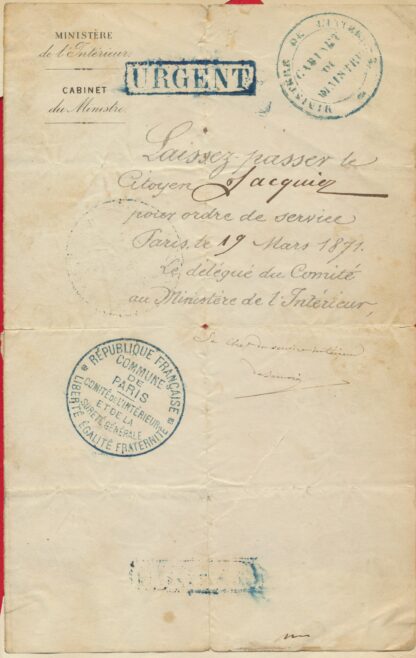 MINISTÈRE
de l'Intérieur
CABINET
du Ministre
URGENT
MINISTÈRE DE L'INTÉRIEUR
CABINET
DU
MINISTRE
Laissez-passer le
Citoyen Jacquier
pour ordre de service
Paris, le 19 Mars 1871.
Le délégué du Comité
au Ministère de l'Intérieur,
Le Chef du service intérieur
RÉPUBLIQUE FRANÇAISE
COMMUNE
DE
PARIS
COMITÉ DE L'INTÉRIEUR
ET DE LA
SURETÉ GÉNÉRALE
LIBERTÉ EGALITÉ FRATERNITÉ